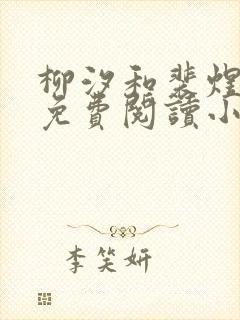 柳汐和裴煌
免費閱讀小
李笑妍